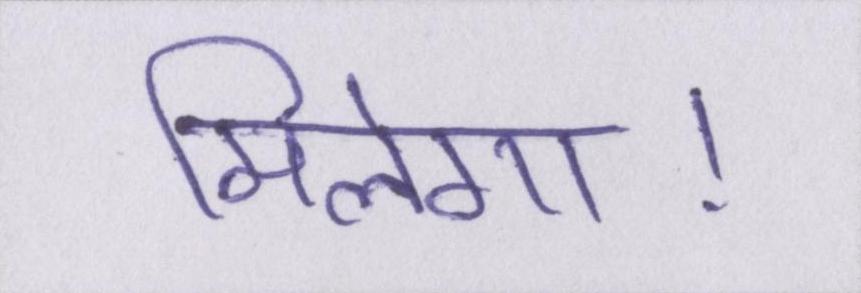 मिलेगा!